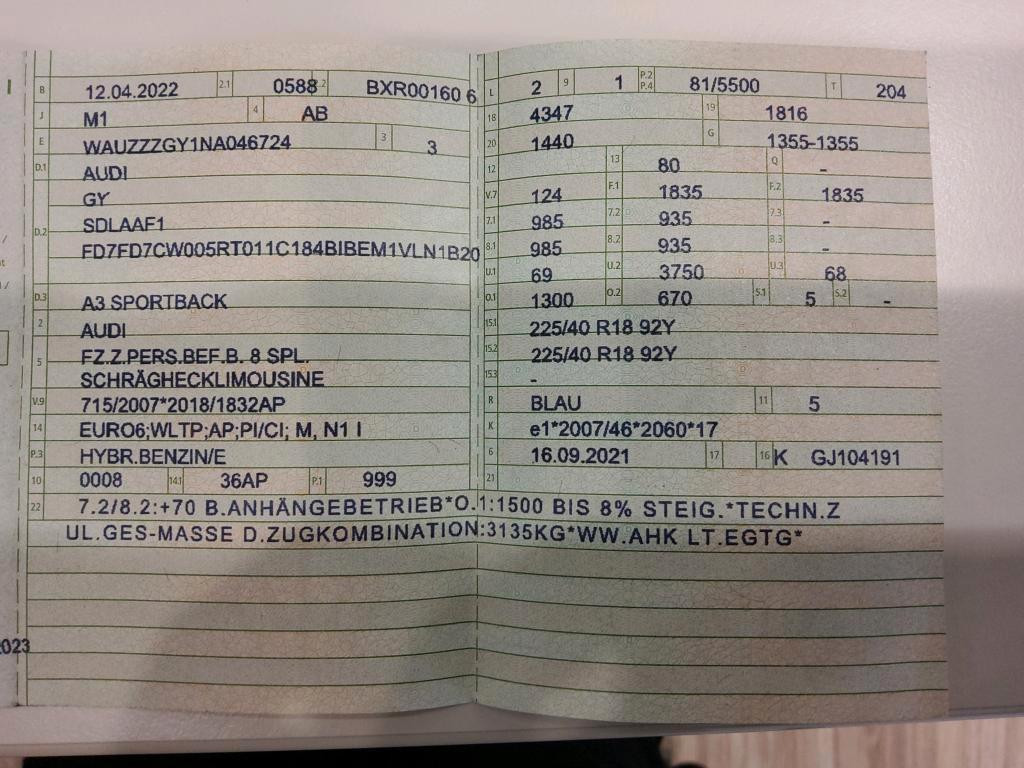 B 12.04.2022 2.1 0588 2.2 BXR00160 6
J M1 4 AB
E WAUZZZGY1NA046724 3 3
D.1 AUDI
GY
D.2 SDLAAF1
FD7FD7CW005RT011C184BIBEM1VLN1B20
D.3 A3 SPORTBACK
2 AUDI
5 FZ.Z.PERS.BEF.B. 8 SPL.
SCHRÄGHECKLIMOUSINE
V.9 715/2007*2018/1832AP
14 EURO6;WLTP;AP;PI/CI; M, N1 I
P.3 HYBR.BENZIN/E
10 0008 14.1 36AP P.1 999
L 2 9 1 P.2 P.4 81/5500 T 204
18 4347 19 1816
20 1440 G 1355-1355
12 13 80 Q -
V.7 124 F.1 1835 F.2 1835
7.1 985 7.2 935 7.3 -
8.1 985 8.2 935 8.3 -
U.1 69 U.2 3750 U.3 68
O.1 1300 O.2 670 S.1 5 S.2 -
15.1 225/40 R18 92Y
15.2 225/40 R18 92Y
15.3 -
R BLAU 11 5
K e1*2007/46*2060*17
6 16.09.2021 17 16 K GJ104191
21
22 7.2/8.2:+70 B.ANHÄNGEBETRIEB*O.1:1500 BIS 8% STEIG.*TECHN.Z
UL.GES-MASSE D.ZUGKOMBINATION:3135KG*WW.AHK LT.EGTG*